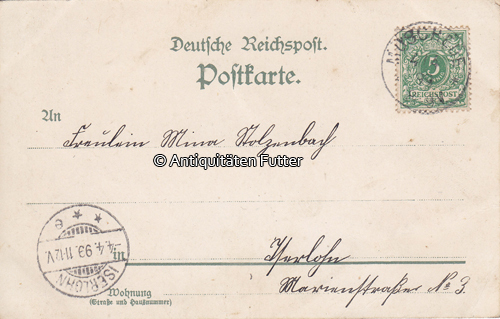 Deutsche Reichspost.
Postkarte.
5
REICHSPOST
An
Fräulein Mina Stolzenbach
© Antiquitäten Futter
in Iserlohn
ISERLOHN
4.4.99. 11-12V.
* * e
Marienstraße No 3.
Wohnung
(Straße und Hausnummer)